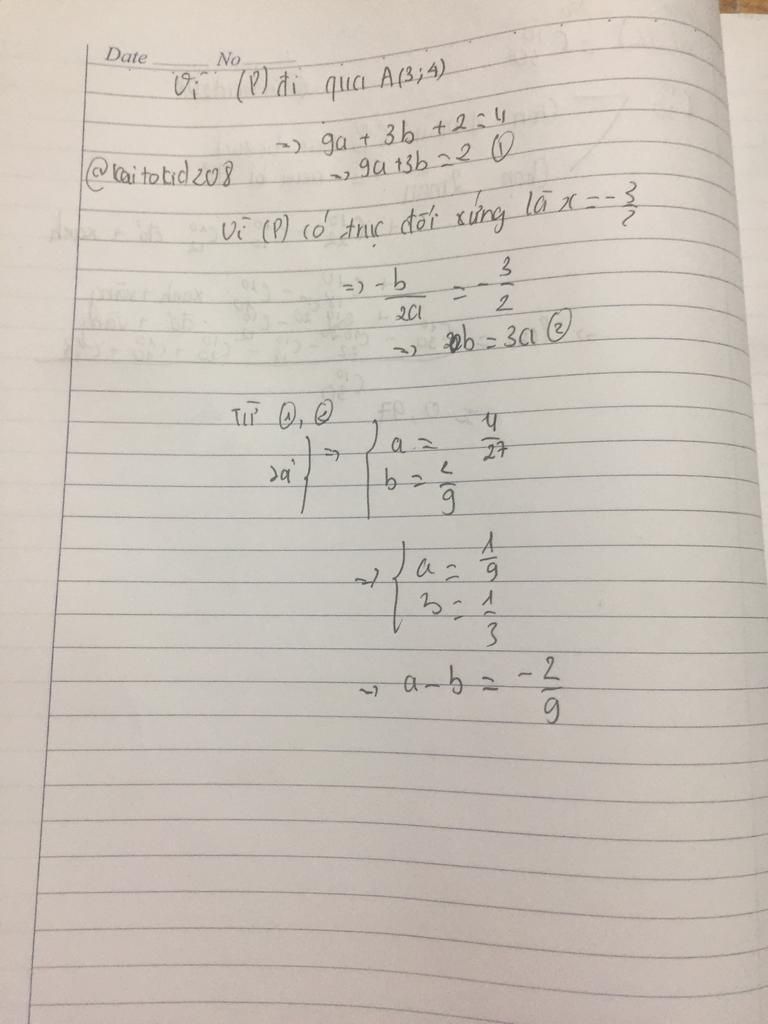 Date No
Vì (P) đi qua A(3;4)
=> 9a + 3b + 2 = 4
@kaitokid208 => 9a+3b = 2 ①
Vì (P) có trục đối xứng là x = -3/2
=> -b/2a = -3/2
=> b = 3a ②
Từ ①, ②
=> { a = 4/27
b = 2/9
=> { a = 1/9
b = 1/3
=> a - b = -2/9